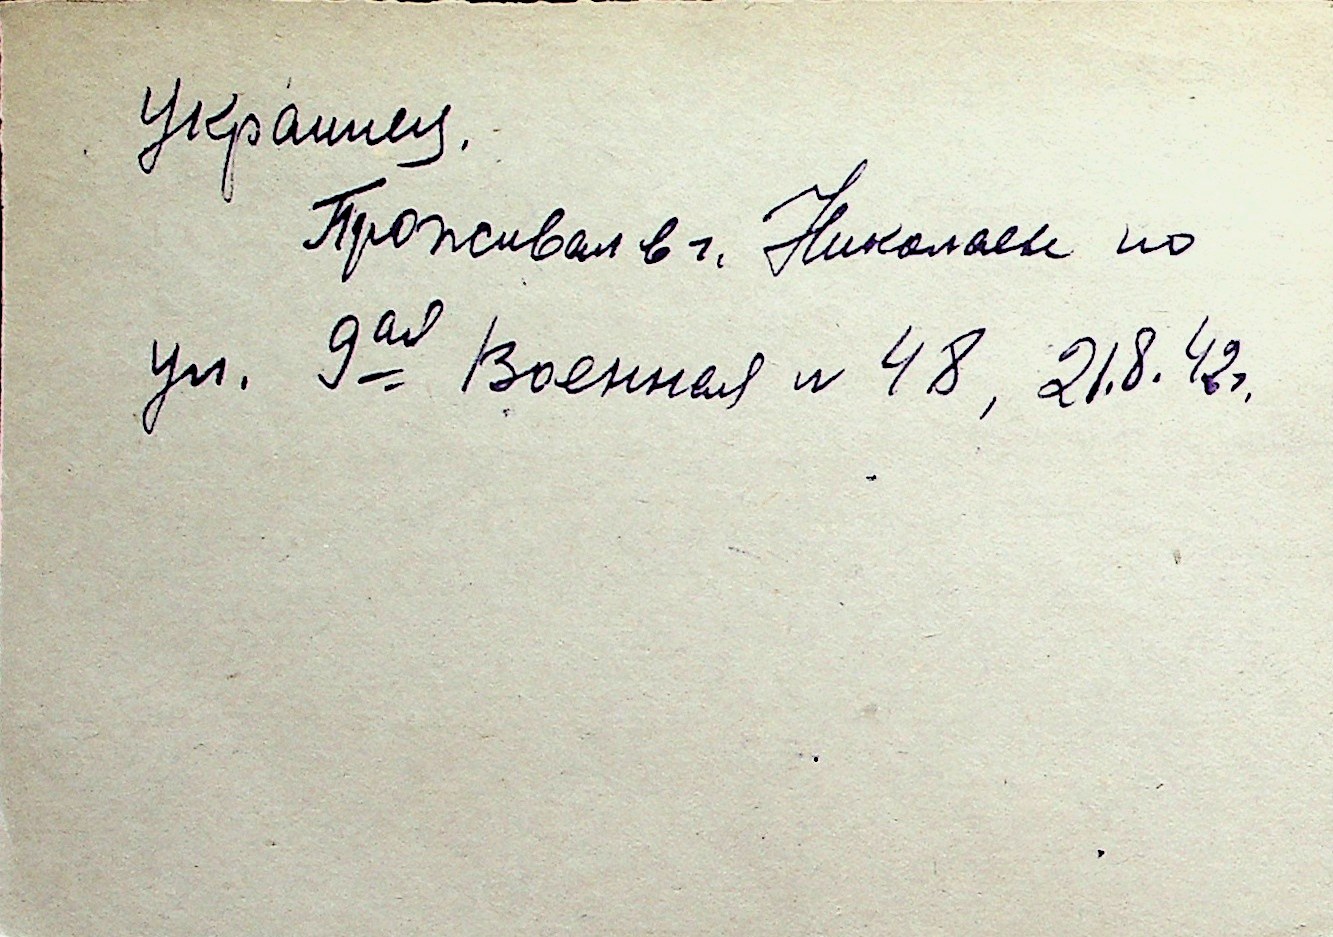 Украинец.
Проживал в г. Николаеве по
ул. 9ая Военная № 48, 21.8.42г.